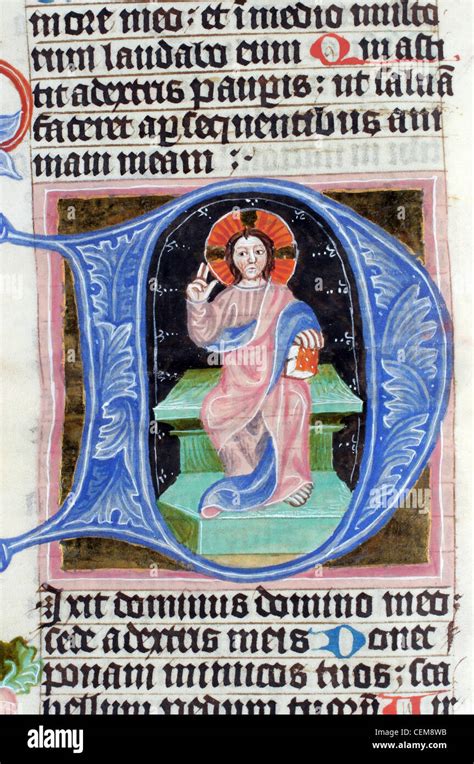 more meo: et i medio multo
rum laudabo eum Qm asti
tit adextris paupis: ut saluā
faceret apsequentibus ani
mam meam :·
D
Ixit dominus domino meo
sede adextris meis Donec
ponam inimicos tuos: sca
bellum pedum tuorū Vir
alamy
Image ID: CEM8WB
www.alamy.com